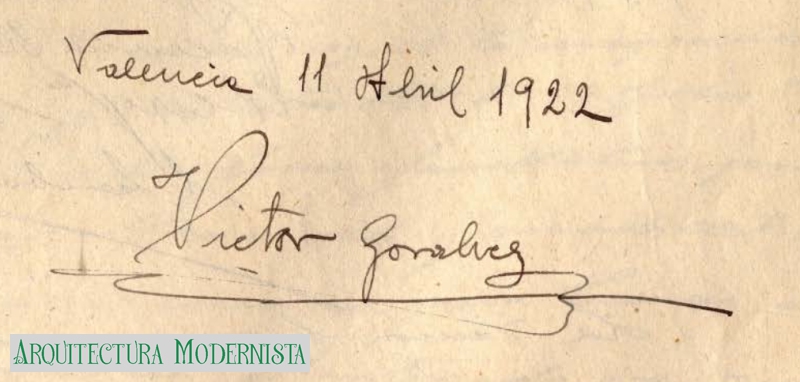 Valencia 11 Abril 1922
Victor Goralvez
ARQUITECTURA MODERNISTA